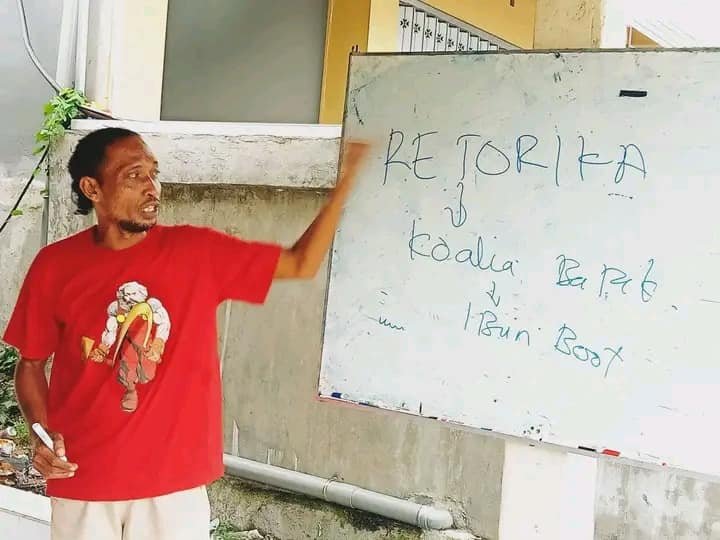 RETORIKA
Koalia Barak
Ibun Boot